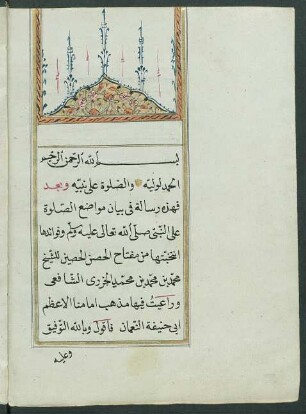 بسم الله الرحمن الرحيم
الحمد لوليه والصلوة على نبيه وبعد
فهذه رسالة فى بيان مواضع الصلوة
على النبى صلى الله تعالى عليه وسلم وفوائدها
انتخبتها من مفتاح الحصن الحصين للشيخ
محمد بن محمد بن محمد الجزرى الشافعى
وراعيت فيها مذهب امامنا الاعظم
ابى حنيفة النعمان فاقول وبالله التوفيق
وعليه